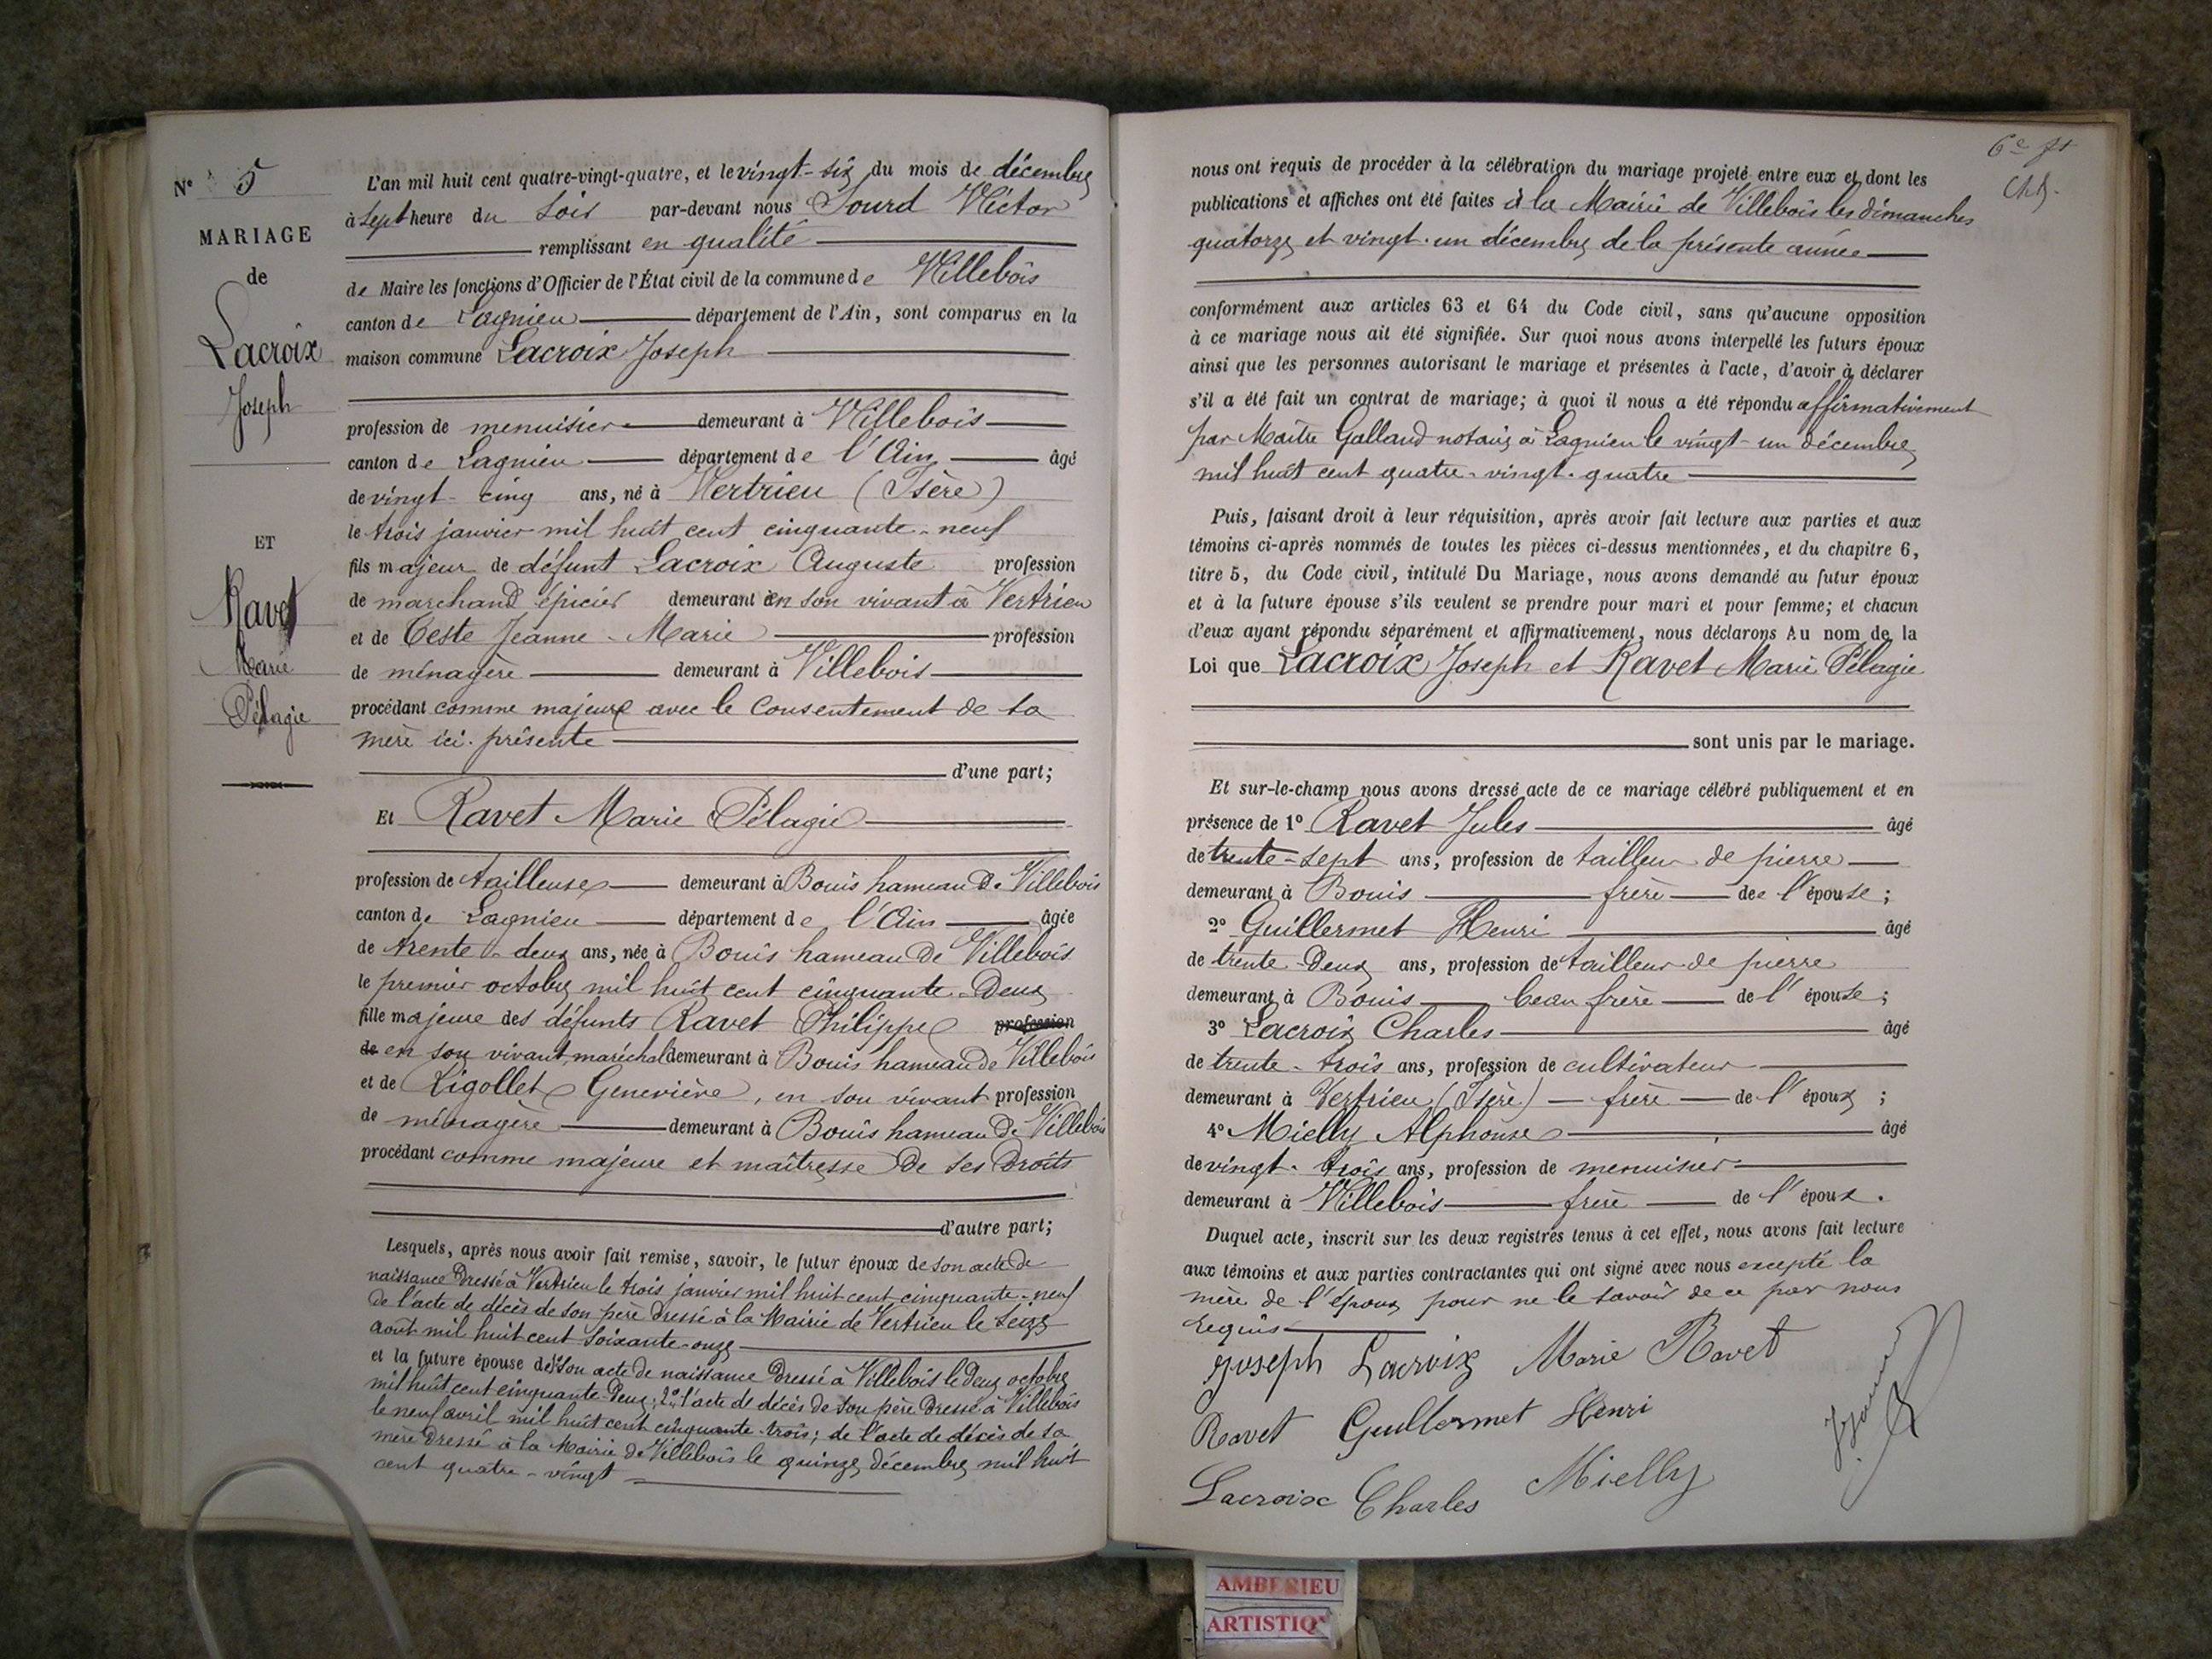 N° 5
MARIAGE
de
Lacroix
Joseph
ET
Ravet
Marie
Pélagie
L'an mil huit cent quatre-vingt-quatre, et le vingt-six du mois de décembre
à Sept heure du Soir par-devant nous Sourd Victor
remplissant en qualité
de Maire les fonctions d'Officier de l'État civil de la commune de Villebois
canton de Lagnieu département de l'Ain, sont comparus en la
maison commune Lacroix Joseph
profession de menuisier demeurant à Villebois
canton de Lagnieu département de l'Ain âgé
de vingt-cinq ans, né à Vertrieu (Isère)
le trois janvier mil huit cent cinquante-neuf
fils majeur de défunt Lacroix Auguste profession
de marchand épicier demeurant en son vivant à Vertrieu
et de Ceste Jeanne-Marie profession
de ménagère demeurant à Villebois
procédant comme majeur avec le consentement de sa
mère ici présente
d'une part;
Et Ravet Marie Pélagie
profession de tailleuse demeurant à Bouis hameau de Villebois
canton de Lagnieu département de l'Ain âgée
de trente-deux ans, née à Bouis hameau de Villebois
le premier octobre mil huit cent cinquante-deux
fille majeure des défunts Ravet Philippe profession
de en son vivant maréchal demeurant à Bouis hameau de Villebois
et de Rigollet Geneviève, en son vivant profession
de ménagère demeurant à Bouis hameau de Villebois
procédant comme majeure et maîtresse de ses droits
d'autre part;
Lesquels, après nous avoir fait remise, savoir, le futur époux de son acte de
naissance dressé à Vertrieu le trois janvier mil huit cent cinquante-neuf
de l'acte de décès de son père dressé à la Mairie de Vertrieu le seize
août mil huit cent soixante-onze
et la future épouse de son acte de naissance dressé à Villebois le deux octobre
mil huit cent cinquante-deux; 2° l'acte de décès de son père dressé à Villebois
le neuf avril mil huit cent cinquante-trois; de l'acte de décès de sa
mère dressé à la Mairie de Villebois le quinze décembre mil huit
cent quatre-vingt
6e
nous ont requis de procéder à la célébration du mariage projeté entre eux et dont les
publications et affiches ont été faites à la Mairie de Villebois les dimanches
quatorze et vingt-un décembre de la présente année
conformément aux articles 63 et 64 du Code civil, sans qu'aucune opposition
à ce mariage nous ait été signifiée. Sur quoi nous avons interpellé les futurs époux
ainsi que les personnes autorisant le mariage et présentes à l'acte, d'avoir à déclarer
s'il a été fait un contrat de mariage; à quoi il nous a été répondu affirmativement
par Maître Galland notaire à Lagnieu le vingt-un décembre
mil huit cent quatre-vingt-quatre
Puis, faisant droit à leur réquisition, après avoir fait lecture aux parties et aux
témoins ci-après nommés de toutes les pièces ci-dessus mentionnées, et du chapitre 6,
titre 5, du Code civil, intitulé Du Mariage, nous avons demandé au futur époux
et à la future épouse s'ils veulent se prendre pour mari et pour femme; et chacun
d'eux ayant répondu séparément et affirmativement, nous déclarons Au nom de la
Loi que Lacroix Joseph et Ravet Marie Pélagie
sont unis par le mariage.
Et sur-le-champ nous avons dressé acte de ce mariage célébré publiquement et en
présence de 1° Ravet Jules âgé
de trente-sept ans, profession de tailleur de pierre
demeurant à Bouis frère de l'épouse;
2° Guillermet Henri âgé
de trente-deux ans, profession de tailleur de pierre
demeurant à Bouis beau frère de l'épouse;
3° Lacroix Charles âgé
de trente-trois ans, profession de cultivateur
demeurant à Vertrieu (Isère) frère de l'époux;
4° Mielly Alphonse âgé
de vingt-trois ans, profession de menuisier
demeurant à Villebois frère de l'époux.
Duquel acte, inscrit sur les deux registres tenus à cet effet, nous avons fait lecture
aux témoins et aux parties contractantes qui ont signé avec nous excepté la
mère de l'époux pour ne le savoir de ce par nous
requis
Joseph Lacroix Marie Ravet
Ravet Guillermet Henri
Lacroix Charles Mielly
AMBERIEU
ARTISTIQ